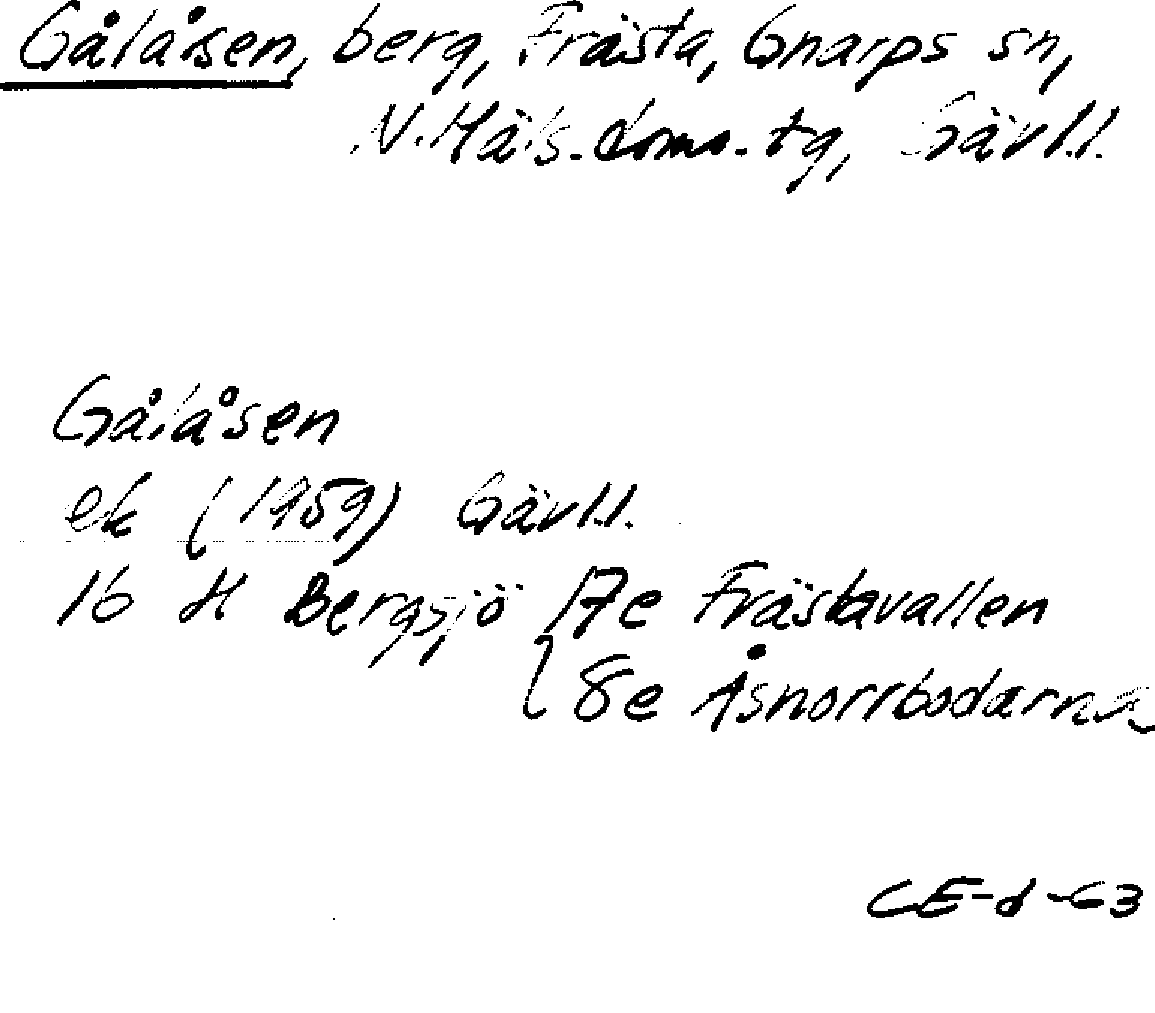 Gålåsen, berg, Frästa, Gnarps sn,
N.Häls. doms. tg, Gävl.l.
Gålåsen
ek (1959) Gävl.l.
16 H Bergsjö 17e Frästavallen
{ 8e Åsnorrbodarna
CE-d-63